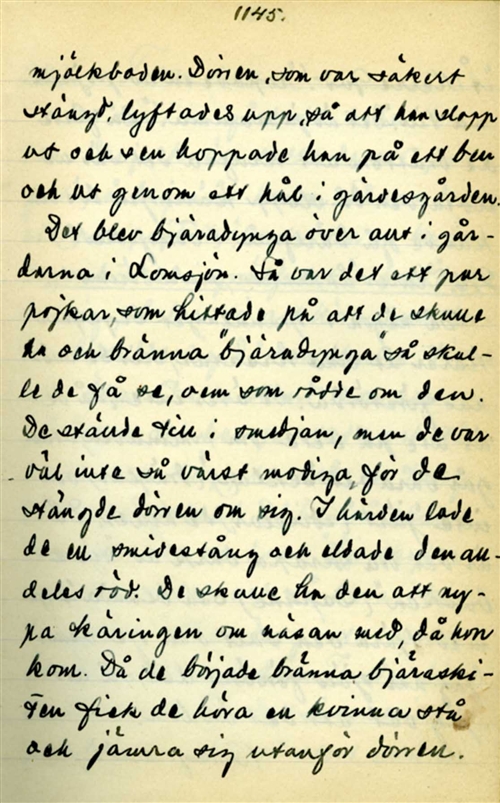 1145.
mjölkboden. Dörren, som var säkert
stängd, lyftades upp, så att han slapp
ut och sen hoppade han på ett ben
och ut genom ett hål i gärdesgården.
Det blev bjäradynga över allt i går-
darna i Lomsjön. Så var det ett par
pojkar, som hittade på att de skulle
ha och bränna "bjäradynga" så skul-
le de få se, vem som rådde om den.
De stände till i smedjan, men de var
väl inte så värst modiga, för de
stängde dörren om sig. I härden lade
de en smidestång och eldade den all-
deles röd. De skulle ha den att ny-
pa käringen om näsan med, då hon
kom. Då de började bränna bjäraski-
ten fick de höra en kvinna stå
och jämra sig utanför dörren.